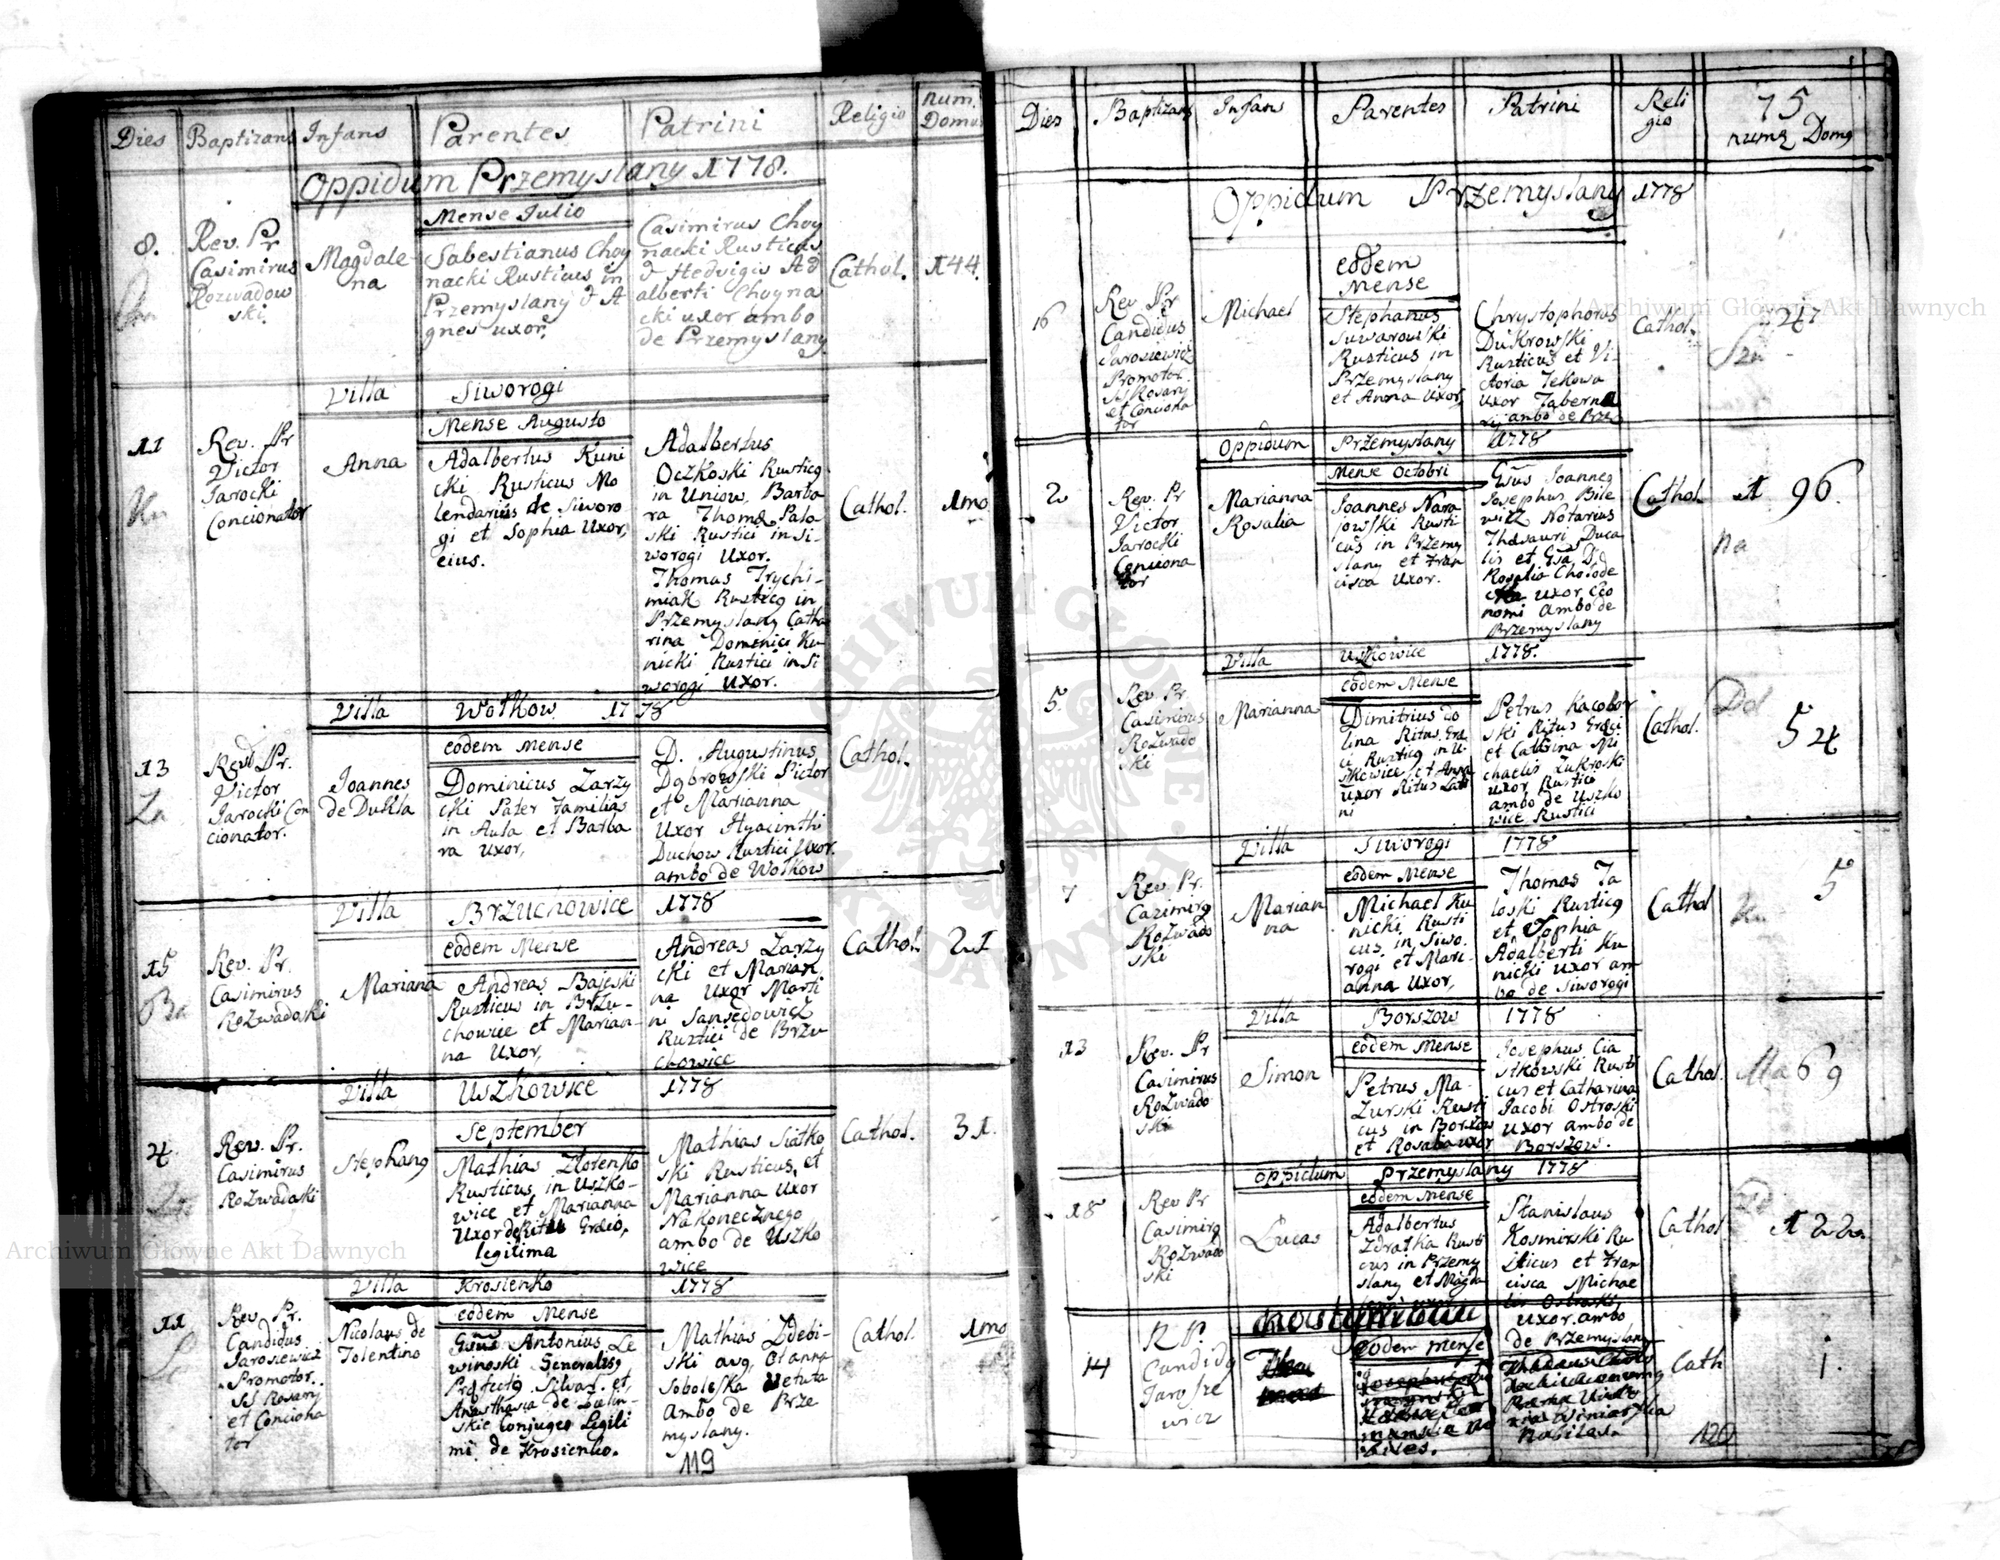 Dies Baptizans Infans Parentes Patrini Religio num. Domus
Oppidum Przemyslany 1778.
Mense Julio
8.
Rev. Pr
Casimirus
Rozwadow
ski.
Magdale
na
Sabestianus Choy
nacki Rusticus in
Przemyslany & A
gnes uxor.
Casimirus Choy
nacki Rusticus
& Hedvigis Ad
alberti Choyna
cki uxor ambo
de Przemyslany
Cathol.
144.
Villa Siworogi
Mense Augusto
11
Rev. Pr
Victor
Jarocki
Concionator
Anna
Adalbertus Kuni
cki Rusticus Mo
lendarius de Siworo
gi et Sophia Uxor,
eius.
Adalbertus
Oczkoski Rusticq
in Uniow, Barba
ra Thomæ Pala
ski Rustici in Si-
worogi Uxor.
Thomas Trychi-
miak Rusticq in
Przemyslany Catha
rina Dominici Ku-
nicki Rustici in Si
worogi Uxor.
Cathol.
1mo
Villa Wołkow 1778
eodem mense
13
Za
Revd Pr.
Victor
Jarocki Con
cionator.
Joannes
de Dukla
Dominicus Zarzy
cki Pater Familias
in Aula et Barba
ra uxor,
D. Augustinus
Dabrowski Pictor
et Marianna
Uxor Hyacinthi
Duchow Rustici Uxor.
ambo de Wołkow
Cathol.
Villa Brzuchowice 1778
eodem Mense
15
Ba
Rev. Pr.
Casimirus
Rozwadoski
Mariana
Andreas Bajeski
Rusticus in Brzu-
chowice et Marian-
na Uxor,
Andreas Zarzy
cki et Marian
na Uxor Marti
ni Sansedowicz
Rustici de Brzu
chowice
Cathol.
21
Villa Uszkowice 1778
September
4
Rev. Pr.
Casimirus
Rozwadoski
Stephanq
Mathias Złotenko
Rusticus in Uszko-
wice et Marianna
Uxor de Ritu Græco,
legitima
Mathias Siatko
ski Rusticus et
Marianna Uxor
Nakonecznego
ambo de Uszko
wice
Cathol.
31.
Villa Krosienko 1778
eodem Mense
11
Rev. Pr.
Candidus
Jarosiewicz
Promotor.
SS Rosary
et Conciona
tor
Nicolaus de
Tolentino
Antonius Le
winoski Generalisq
Silvar. et,
Anasthasia de
Conjuges Legiti
mi de Krosienko.
Mathias Zdebi-
ski
Soboleska
Ambo de Prze
myslany.
Cathol.
1mo
119
Dies Baptizans Infans Parentes Patrini Reli
gio
75
numq Domq
Oppidum Przemyslany 1778
eodem
Mense
16
Rev Pr
Candidus
Jarosiewicz
Promotor.
SS Rosary
et Conciona
tor
Michael
Stephanus
Suwarowski
Rusticus in
Przemyslany
et Anna Uxor,
Chrystophorus
Dukrowski
Rusticus et Vi-
ctoria Jekowa
Uxor
ambo de Prze
Cathol.
247
Oppidum Przemyslany 1778
Mense Octobri
2
Rev. Pr
Victor
Jarocki
Conciona
tor
Marianna
Rosalia
Joannes Nara
jowski Rusti
cus in Przemy
slany et Fran
cisca Uxor.
Joannes
Josephus Bile
wicz Notarius
Thesauri Duca
lis et
Rosalia Chołode
cka Uxor Œco
nomi ambo de
Przemyslany
Cathol
196.
Na
Villa Uszkowice 1778.
eodem Mense
5.
Rev Pr
Casimirus
Rozwado
ski
Marianna
Dimitrius Do
lina Ritus Græ
ci Rusticq in U-
szkowice et Anna
Uxor Ritus Lati
ni
Petrus Kacobor
ski Ritus Græci
et Cathrina Mi
chaelis Zukroski
uxor Rustici
ambo de Uszko
wice Rustici
Cathol.
Dol
54
Villa Siworogi 1778
eodem Mense
7
Rev. Pr.
Cazimirq
Rozwado
ski
Marian
na
Michael Ku
nicki, Rusti
cus in Siwo-
rogi et Mari-
anna Uxor,
Thomas Ja
łoski Rusticq
et Sophia
Adalberti Ku
nicki uxor am
bo de Siworogi
Cathol
Ku
5
Villa Borszow 1778
eodem Mense
13
Rev. Pr
Casimirus
Rozwado
ski
Simon
Petrus Ma-
zurski Rusti
cus in Borszow
et Rosalia uxor
Josephus Cia
stkowski Rusti
cus et Catharina
Jacobi Ostroski
Uxor ambo de
Borszow.
Cathol.
Ma 69
Oppidum Przemyslany 1778
eodem Mense
18
Rev Pr
Casimirq
Rozwado
ski
Lucas
Adalbertus
Zdratka Rusti
cus in Przemy
slany et Magda
Stanislaus
Kosmirski Ru
sticus et Fran
cisca Michae
lis Ostroski
uxor. ambo
de Przemyslany
Cathol
122
eodem mense
14
R. P.
Candidq
Jarosze
wicz
Nobiles.
Cath
1.
120
Archiwum Główne Akt Dawnych
Archiwum Główne Akt Dawnych
ARCHIWUM GŁÓWNE AKT DAWNYCH